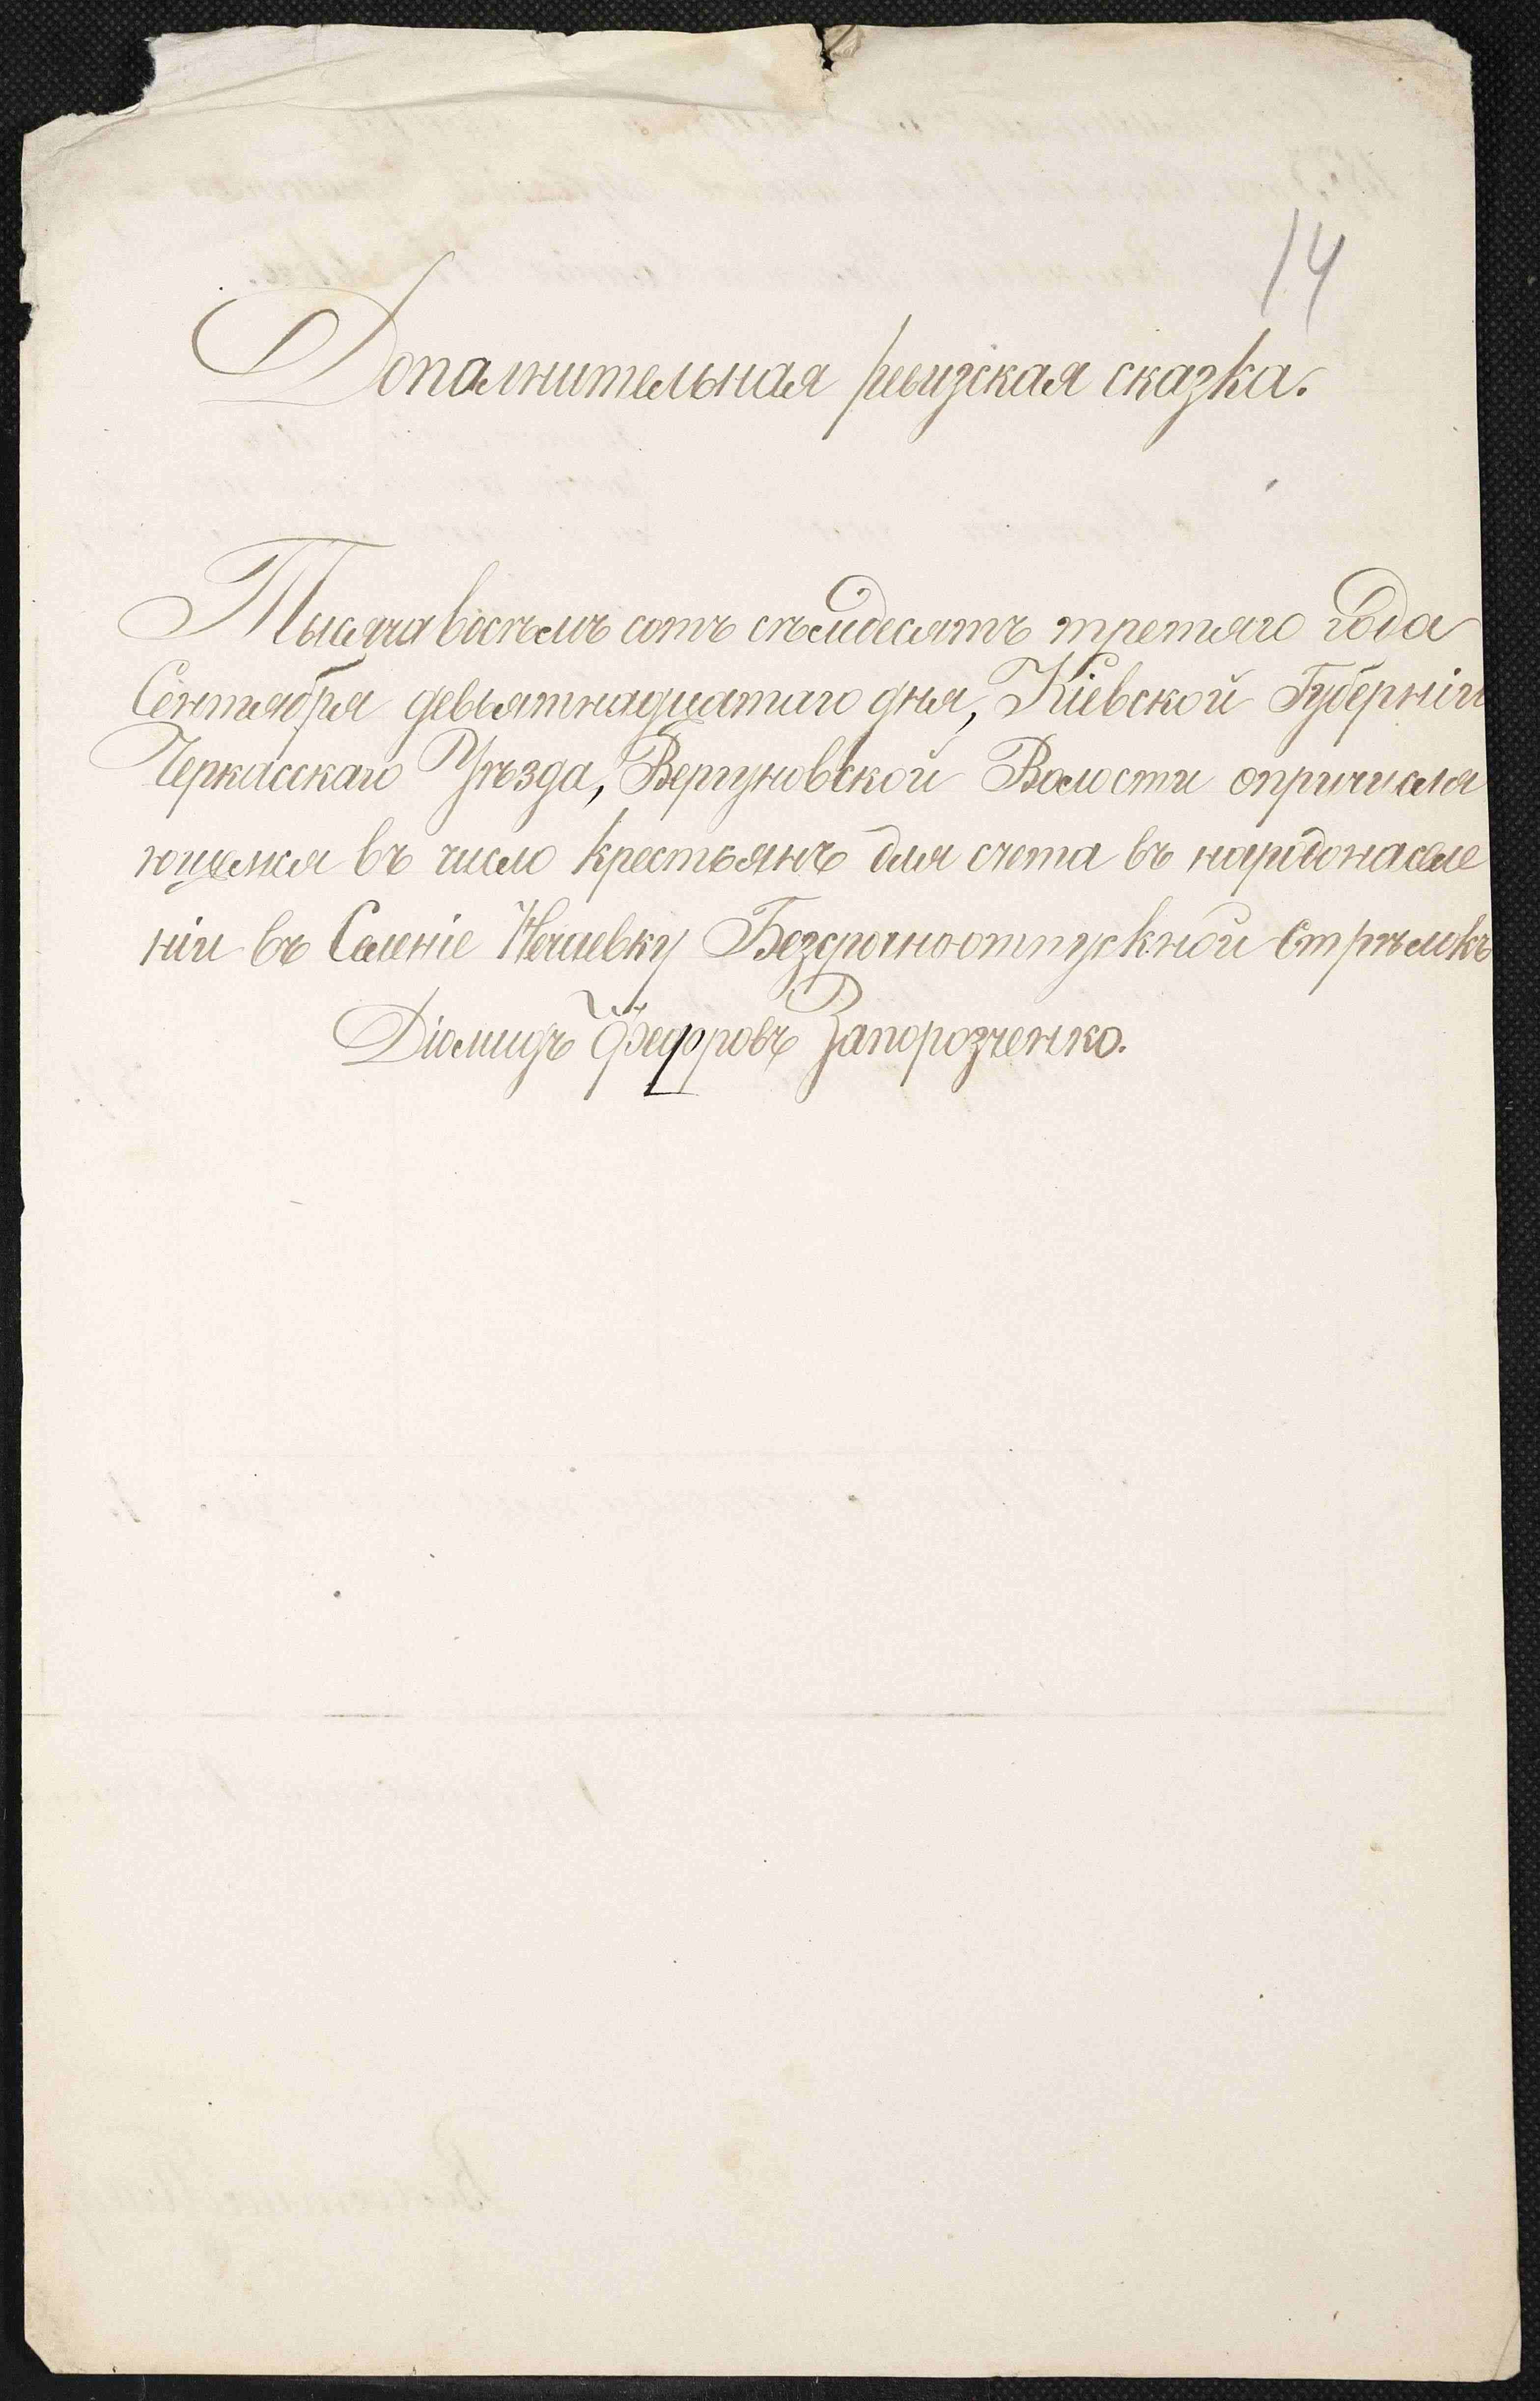 14
Дополнительная ревизская сказка.
Тысяча восѣмъ сотъ сѣмдесятъ третяго Года
Сентября девьятнадцатаго дня, Кіевской Губерніи
Черкасскаго Уѣзда, Вергуновской Волости о причисля
ющемся въ число крестьянъ для счета въ народонаселе
ніи въ Селеніе Нечаевку Безсрочноотпускной Стрѣлокъ
Діомидъ Федоровъ Запорозченко.